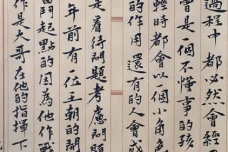 過程中都必然會經
曾是一個不懂事的孩
輕時都會以一個角
的作用還有的人會成
是看待問題考慮問題
年前有一任王朝的開
奮鬥起點的因為他作戰
作是大哥在他的指揮下